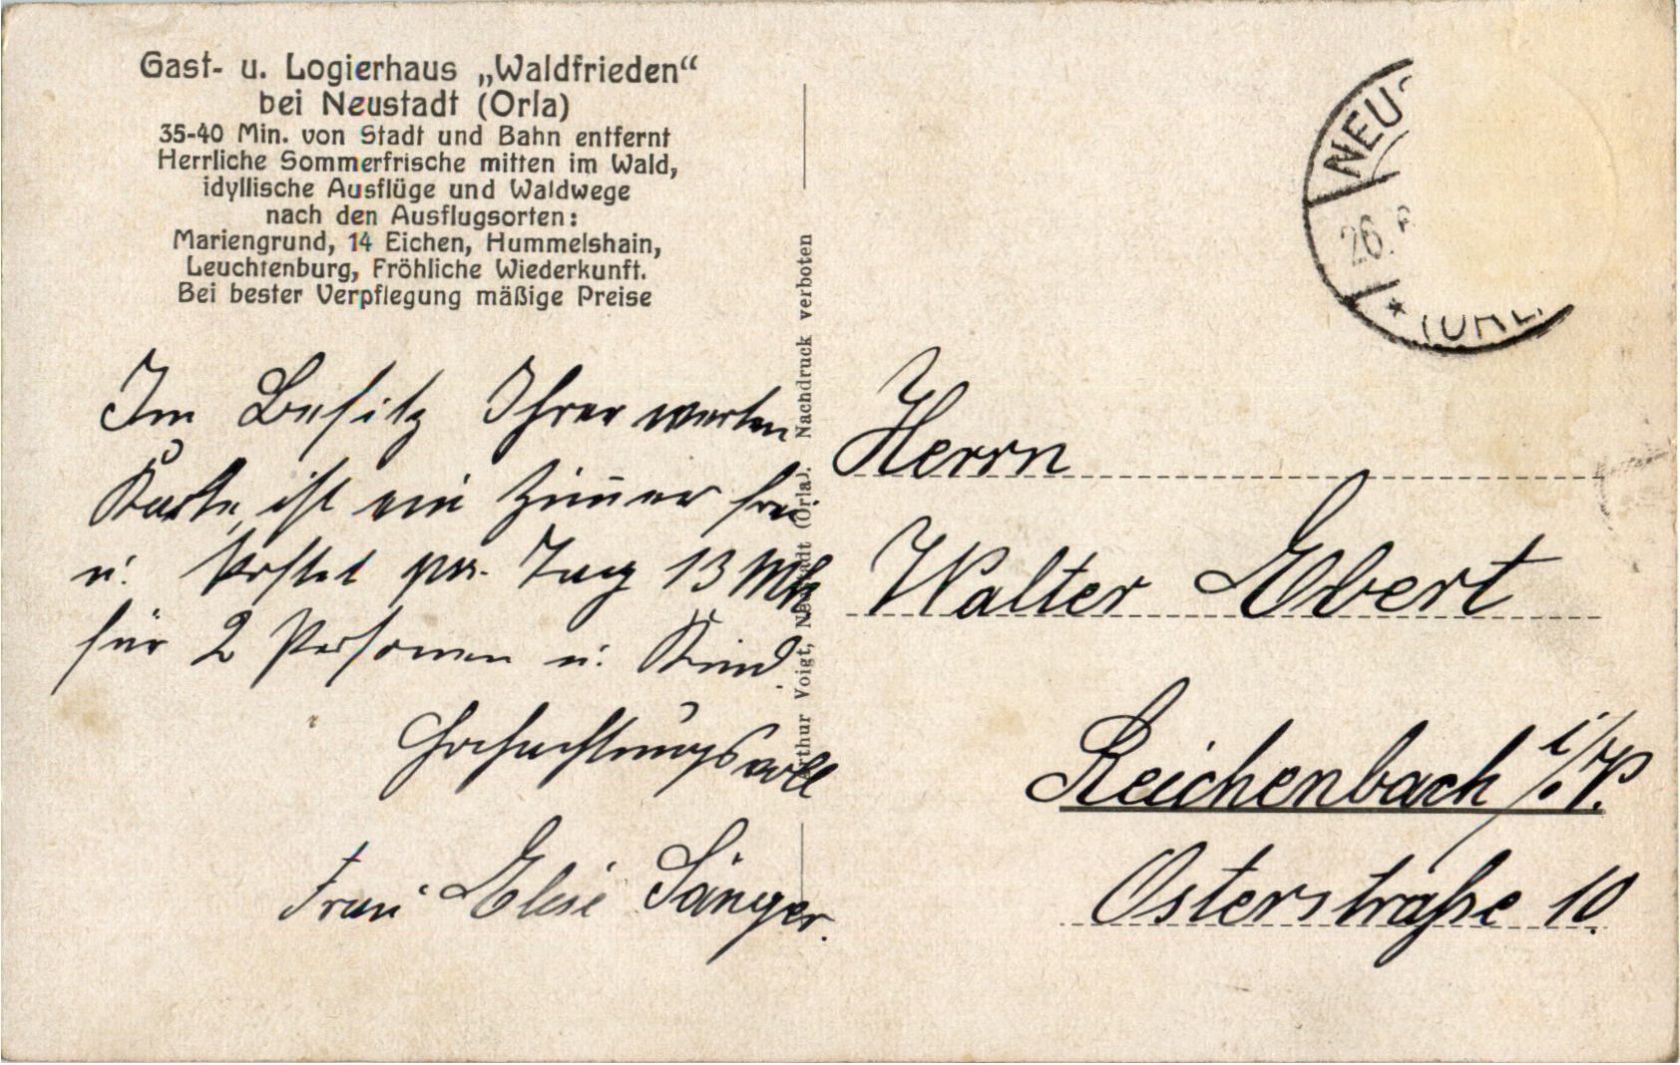 Gast- u. Logierhaus „Waldfrieden“
bei Neustadt (Orla)
35-40 Min. von Stadt und Bahn entfernt
Herrliche Sommerfrische mitten im Wald,
idyllische Ausflüge und Waldwege
nach den Ausflugsorten:
Mariengrund, 14 Eichen, Hummelshain,
Leuchtenburg, Fröhliche Wiederkunft.
Bei bester Verpflegung mäßige Preise
Im Besitz Ihrer werten
Karte, ist ein Zimmer frei
u. kostet pro. Tag 13 Mk
für 2 Personen u. Kind.
Hochachtungsvoll
Frau Elise Sänger.
Arthur Voigt, Neustadt (Orla). Nachdruck verboten
NEUS
26.
* (ORL
Herrn
Walter Ebert
Reichenbach i/V.
Osterstraße 10.